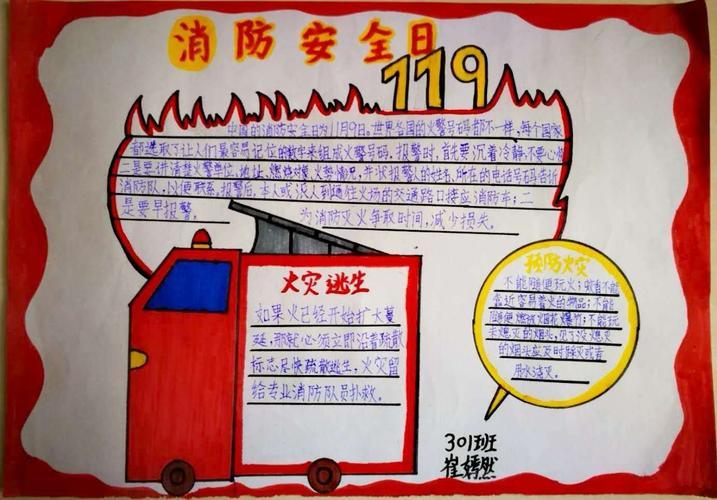 消防安全日
119
中国的消防安全日为11月9日。世界各国的火警号码都不一样，每个国家
都选取了让人们最容易记住的数字来组成火警号码。报警时，首先要沉着冷静不要心慌
二是要讲清楚火警单位、地址、燃烧对象、火势情况，并将报警人的姓名、所在的电话号码告诉
消防队，以便联系。报警后，本人或派人到通往火场的交通路口接应消防车；二
是要早报警。为消防灭火争取时间，减少损失。
火灾逃生
如果火已经开始扩大蔓
延，那就必须立即沿着疏散
标志尽快疏散逃生，火灾留
给专业消防队员扑救。
预防火灾
不能随便玩火；蚊香不能
靠近容易着火的物品；不能
随便燃放烟花爆竹；不能玩
未熄灭的烟头，见了没熄灭
的烟头应及时踩灭或者
用水浇灭。
301班
崔嫣然